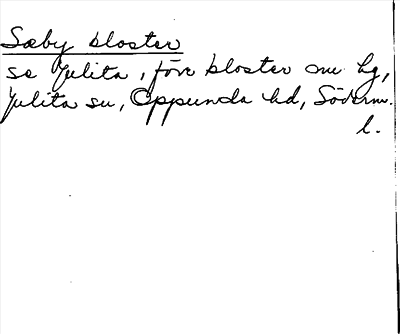 Sæby kloster
se Julita, förr kloster nu hg,
Julita sn, Oppunda hd, Söderm.
l.